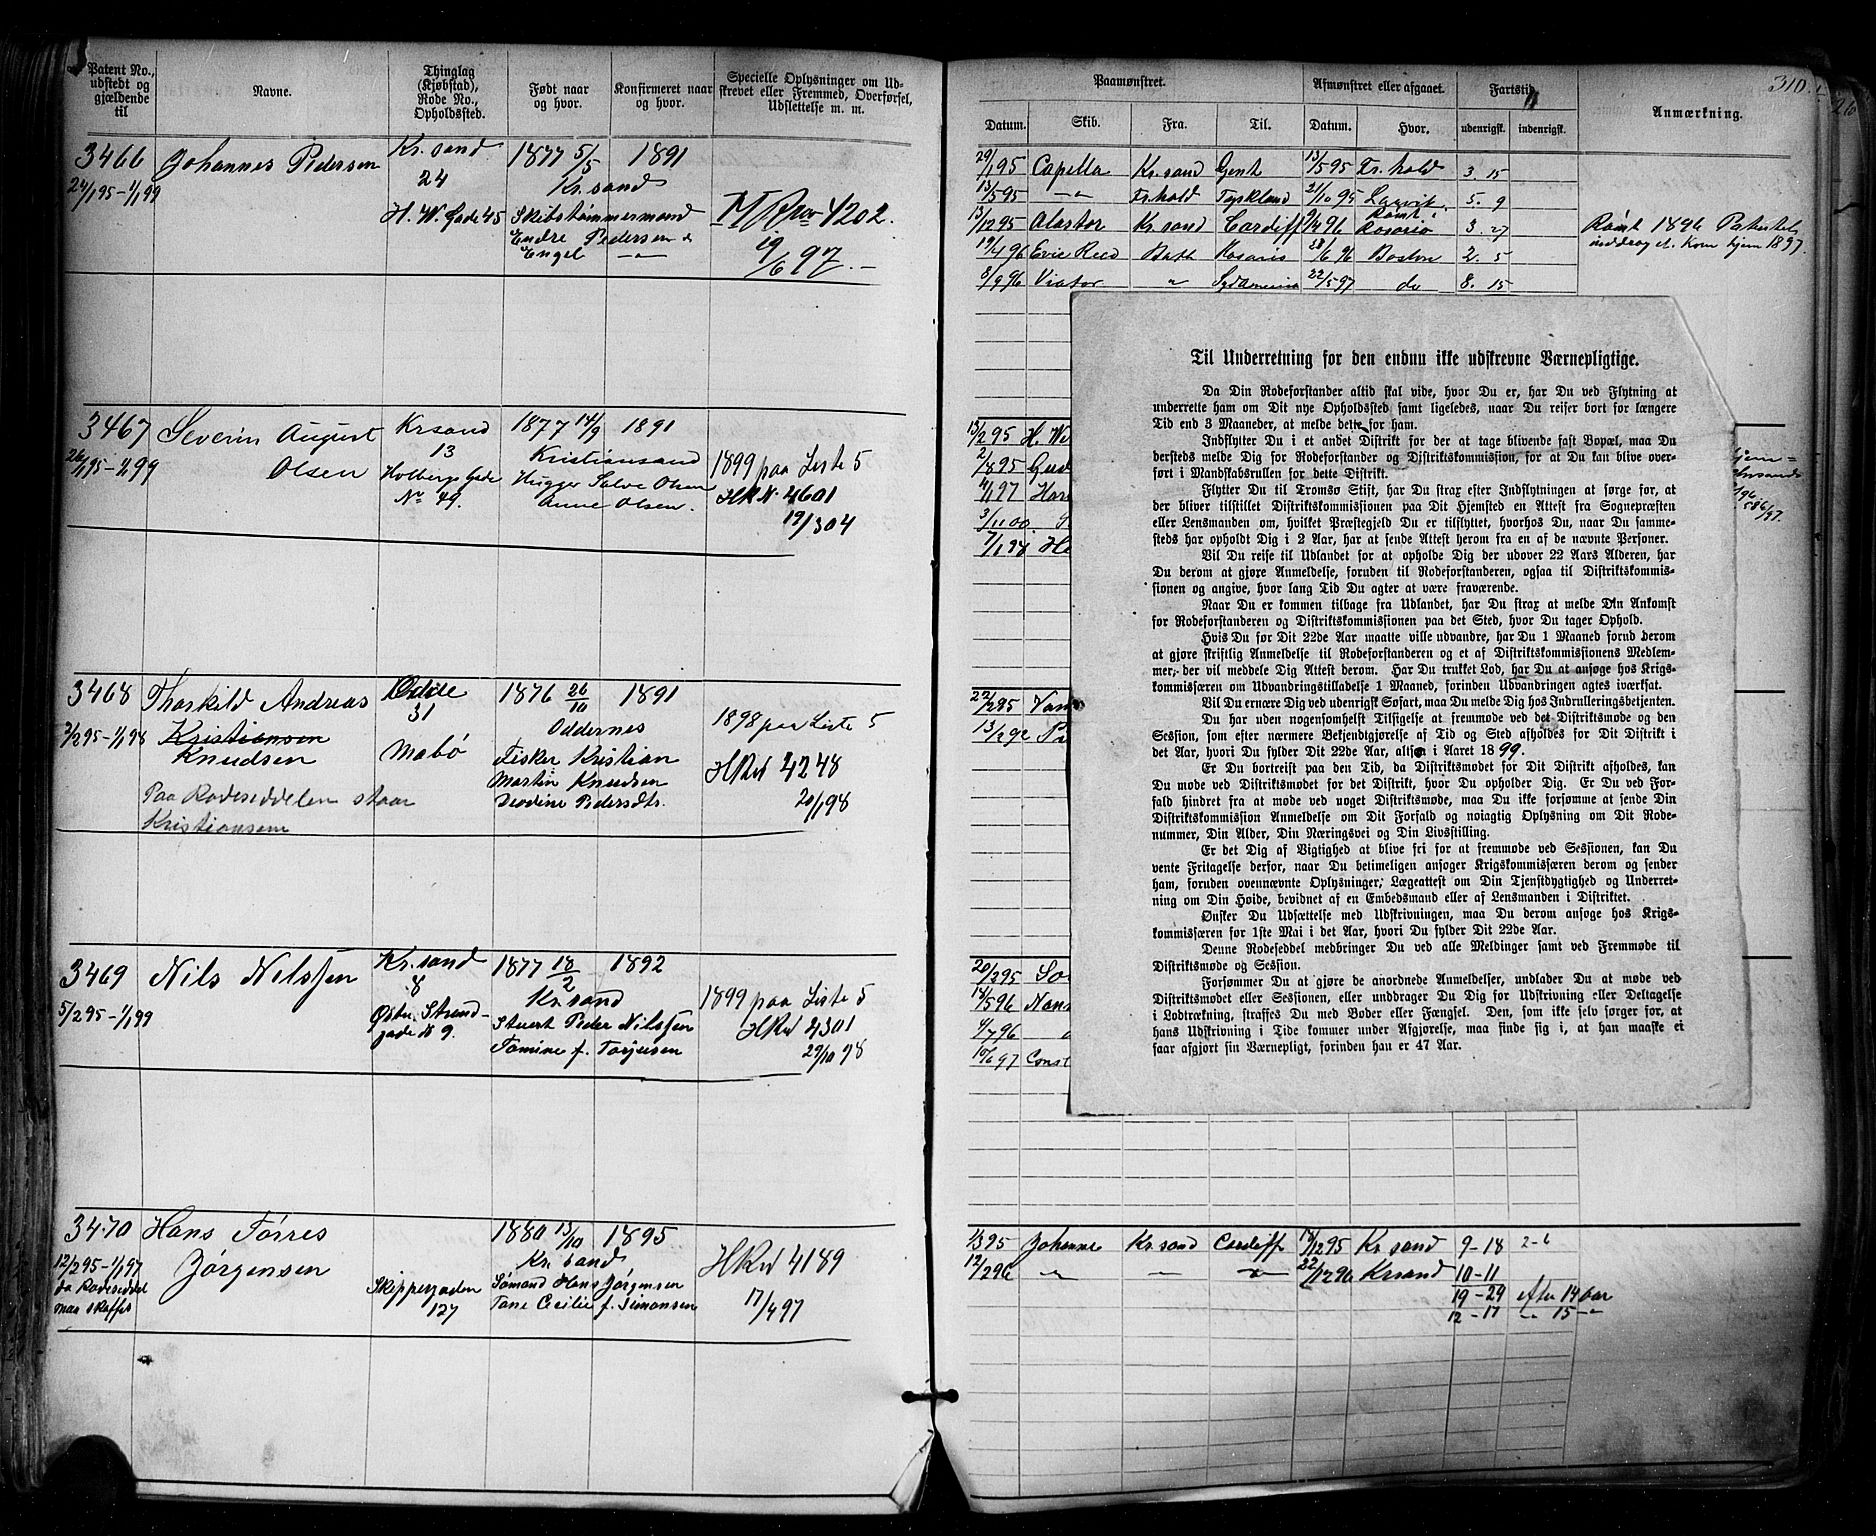 Patent No., udstedt og gjældende til
Navne.
Thinglag (Kjøbstad), Rode No., Opholdssted.
Født naar og hvor.
Konfirmeret naar og hvor.
Specielle Oplysninger om Udskrevet eller Fremmed, Overførsel, Udslettelse m. m.
3466
Johannes Pedersen
Kr.sand
1877 5/5
1891
24/1 95 - 1/1 99
24
Kr.sand
H. W. Gade 45
Skibstømmermand
4202.
Endre Pedersen &
Engel —"—
19/6 97.—
3467
Severin August
Krsand
1877 14/9
1891
26/1 95 - 1/1 99
Olsen
13
Kristiansand
1899 paa Liste 5
Holbergs Gade
Hugger Salve Olsen
HRN. 4601
No 49.
Anne Olsen.
19/3 04
3468
Thorkild Andreas
Odde
1876 26/10
1891
2/2 95 - 1/1 98
Kristiansen
31
Oddernes
1898 paa Liste 5
Knudsen
Mabø
Fisker Kristian
HRN 4248
Martin Knudsen
Paa Rodeseddelen staar
Pedersdtr.
20/1 98
Kristiansen
3469
Nils Nilssen
Kr.sand
1877 18/2
1892
5/2 95 - 1/1 99
8
Kr.sand
1899 paa Liste 5
Østr. Strand-
Stuert Peder Nilssen
gade N 9.
Tomine f. Torjusen
29/10 98
3470
Hans Tørres
1880 13/10
1895
12/2 95 - 1/1 97
Jørgensen
Kr.sand
HRN 4189
Skippergaden
Sømand Hans Jørgensen
127
Tane Cecilie f. Simonsen
17/4 97
310.
Paamønstret.
Afmønstret eller afgaaet.
Fartstid
Anmærkning.
Datum.
Skib.
Fra.
Til.
Datum.
Hvor.
udenrigsk.
indenrigsk.
29/1 95 Capella Kr.sand Gent 13/5 95 Fr.hald 3. 15
13/5 95 —"— Fr.hald Tyskland 21/10 95 Larvik 5. 9
13/12 95 Alastor Kr.sand Cardiff 9/4 96 Rømt i Rosario 3. 27
Rømt 1896 Patentet
19/4 96 Evie Reed Bath Rosario 28/6 96 Boston 2. 5
inddraget. Kom hjem 1897.
8/9 96 Viator " Sydamerica 22/5 97 do 8. 15
Til Underretning for den endnu ikke udskrevne Værnepligtige.
Da Din Rodeforstander altid skal vide, hvor Du er, har Du ved Flytning at
underrette ham om Dit nye Opholdssted samt ligeledes, naar Du reiser bort for længere
Tid end 3 Maaneder, at melde dette for ham.
Indflytter Du i et andet Distrikt for der at tage blivende fast Bopæl, maa Du
dersteds melde Dig for Rodeforstander og Distriktskommission, for at Du kan blive over-
ført i Mandskabsrullen for dette Distrikt.
Flytter Du til Tromsø Stift, har Du strax efter Indflytningen at sørge for, at
der bliver tilstillet Distriktskommissionen paa Dit Hjemsted en Attest fra Sognepræsten
eller Lensmanden om, hvilket Præstegjeld Du er tilflyttet, hvorhos Du, naar Du samme-
steds har opholdt Dig i 2 Aar, har at sende Attest herom fra en af de nævnte Personer.
Vil Du reise til Udlandet for at opholde Dig der udover 22 Aars Alderen, har
Du derom at gjøre Anmeldelse, foruden til Rodeforstanderen, ogsaa til Distriktskommis-
sionen og angive, hvor lang Tid Du agter at være fraværende.
Naar Du er kommen tilbage fra Udlandet, har Du strax at melde Din Ankomst
for Rodeforstanderen og Distriktskommissionen paa det Sted, hvor Du tager Ophold.
Hvis Du før Dit 22de Aar maatte ville udvandre, har Du 1 Maaned forud derom
at gjøre skriftlig Anmeldelse til Rodeforstanderen og et af Distriktskommissionens Medlem-
mer, der vil meddele Dig Attest derom. Har Du trukket Lod, har Du at ansøge hos Krigs-
kommissæren om Udvandringstilladelse 1 Maaned, forinden Udvandringen agtes iværksat.
Vil Du ernære Dig ved udenrigsk Søfart, maa Du melde Dig hos Indrulleringsbetjenten.
Du har uden nogensomhelst Tilsigelse at fremmøde ved det Distriktsmøde og den
Session, som efter nærmere Bekjendtgjørelse af Tid og Sted afholdes for Dit Distrikt i
det Aar, hvori Du fylder Dit 22de Aar, altsaa i Aaret 1899.
Er Du bortreist paa den Tid, da Distriktsmødet for Dit Distrikt afholdes, kan
Du møde ved Distriktsmødet for det Distrikt, hvor Du opholder Dig. Er Du ved For-
fald hindret fra at møde ved noget Distriktsmøde, maa Du ikke forsømme at sende Din
Distriktskommission Anmeldelse om Dit Forfald og nøiagtig Oplysning om Dit Rode-
nummer, Din Alder, Din Næringsvei og Din Livsstilling.
Er det Dig af Vigtighed at blive fri for at fremmøde ved Sessionen, kan Du
vente Fritagelse derfor, naar Du betimeligen ansøger Krigskommissæren derom og sender
ham, foruden ovennævnte Oplysninger, Lægeattest om Din Tjenstdygtighed og Underret-
ning om Din Høide, bevidnet af en Embedsmand eller af Lensmanden i Distriktet.
Ønsker Du Udsættelse med Udskrivningen, maa Du derom ansøge hos Krigs-
kommissæren før 1ste Mai i det Aar, hvori Du fylder Dit 22de Aar.
Denne Rodeseddel medbringer Du ved alle Meldinger samt ved Fremmøde til
Distriktsmøde og Session.
Forsømmer Du at gjøre de anordnede Anmeldelser, undlader Du at møde ved
Distriktsmødet eller Sessionen, eller unddrager Du Dig for Udskrivning eller Deltagelse
i Lodtrækning, straffes Du med Bøder eller Fængsel. Den, som ikke selv sørger for, at
hans Udskrivning i Tide kommer under Afgjørelse, maa finde sig i, at han maaske ei
faar afgjort sin Værnepligt, forinden han er 47 Aar.
13/2 95
2/8 95
4/1 97
22/2 95
13/2 92
20/3 95
14/5 96
4/7 96
10/6 97 Const
1/3 95 Johanne Kr.sand Cardiff 18/12 95 Kr.sand 9-18 2-6
12/2 96 " — " 22/12 96 Krsand 10-11
19-29 efter 14 Aar
12-17 " 15 -"-